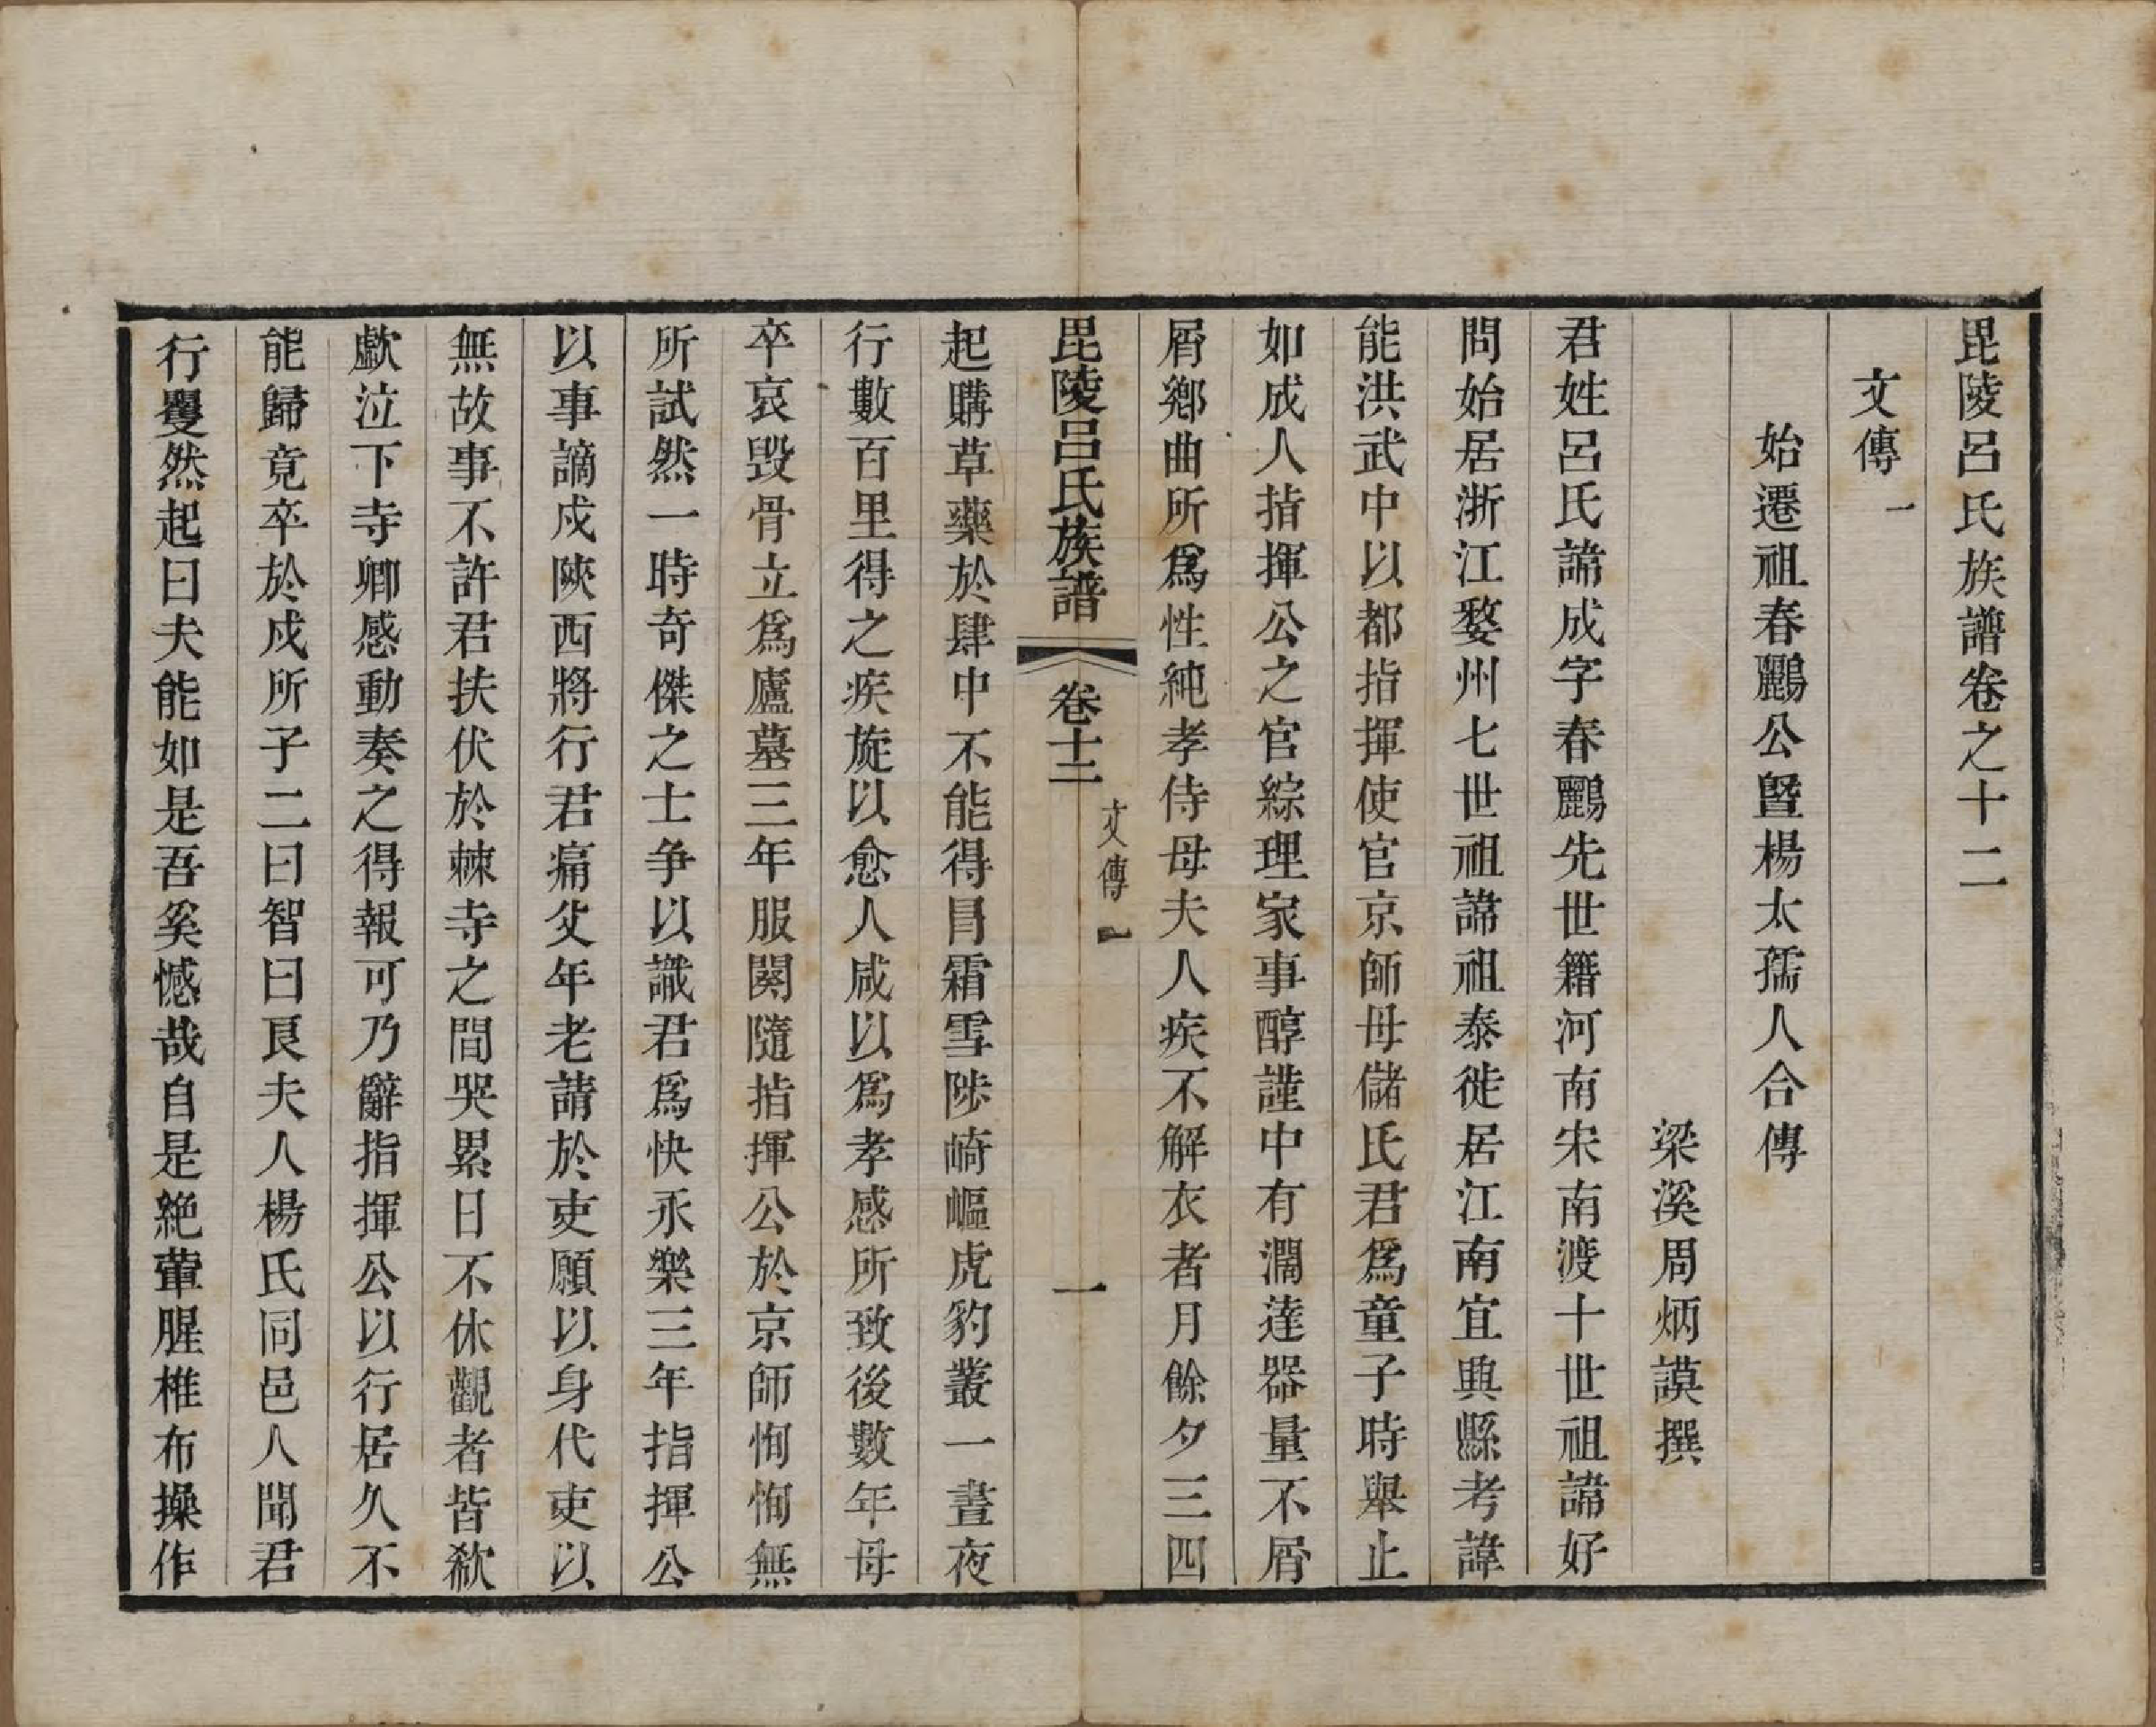 毘陵呂氏族譜卷之十二
文傳一
始遷祖春鸝公曁楊太孺人合傳
梁溪周炳謨撰
君姓呂氏諱成字春鸝先世籍河南宋南渡十世祖諱好
問始居浙江婺州七世祖諱祖泰徙居江南宜興縣考諱
能洪武中以都指揮使官京師母儲氏君爲童子時舉止
如成人指揮公之官綜理家事醇謹中有濶達器量不屑
屑鄉曲所爲性純孝侍母夫人疾不解衣者月餘夕三四
毘陵呂氏族譜
卷十二
文傳一
一
起購草藥於肆中不能得冒霜雪陟崎嶇虎豹叢一晝夜
行數百里得之疾旋以愈人咸以爲孝感所致後數年母
卒哀毀骨立爲廬墓三年服闋隨指揮公於京師恂恂無
所試然一時奇傑之士爭以識君爲快永樂三年指揮公
以事謫戍陝西將行君痛父年老請於吏願以身代吏以
無故事不許君扶伏於棘寺之間哭累日不休觀者皆欷
歔泣下寺卿感動奏之得報可乃辭指揮公以行居久不
能歸竟卒於戍所子二曰智曰良夫人楊氏同邑人聞君
行矍然起曰夫能如是吾奚憾哉自是絶葷腥椎布操作